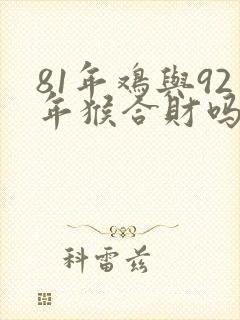 81年鸡與92
年猴合財吗
科雷兹